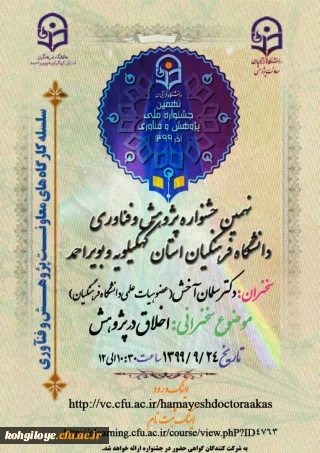 دانشگاه فرهنگیان
معاونت پژوهشی
دانشگاه فرهنگیان
نهمین
جشنواره ملی
پژوهش و فناوری
آذر ۱۳۹۹
سلسله کارگاه های معاونت پژوهش و فنآوری
نهمین جشنواره پژوهش و فناوری
دانشگاه فرهنگیان استان کهگیلویه و بویراحمد
سخنران: دکتر سلمان آخش (عضو هیات علمی دانشگاه فرهنگیان)
موضوع سخنرانی: اخلاق در پژوهش
تاریخ ۱۳۹۹/۹/۲۴ ساعت ۱۰:۳۰ الی ۱۲
لینک ورود
http://vc.cfu.ac.ir/hamayeshdoctoraakas
لینک ثبت نام
kohgiloye.cfu.ac.ir
learning.cfu.ac.ir/course/view.phP?ID۴۷۶۳
به شرکت کنندگان گواهی حضور در جشنواره ارائه خواهد شد.